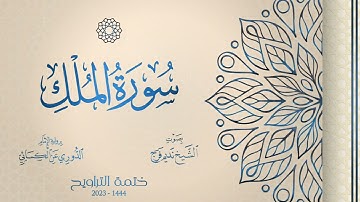 سُورَةُ المُلْكِ
بصوت
الشيخ نديم فرج
برواية الإمام
الدوري عن الكسائي
ختمة التراويح
2023 - 1444